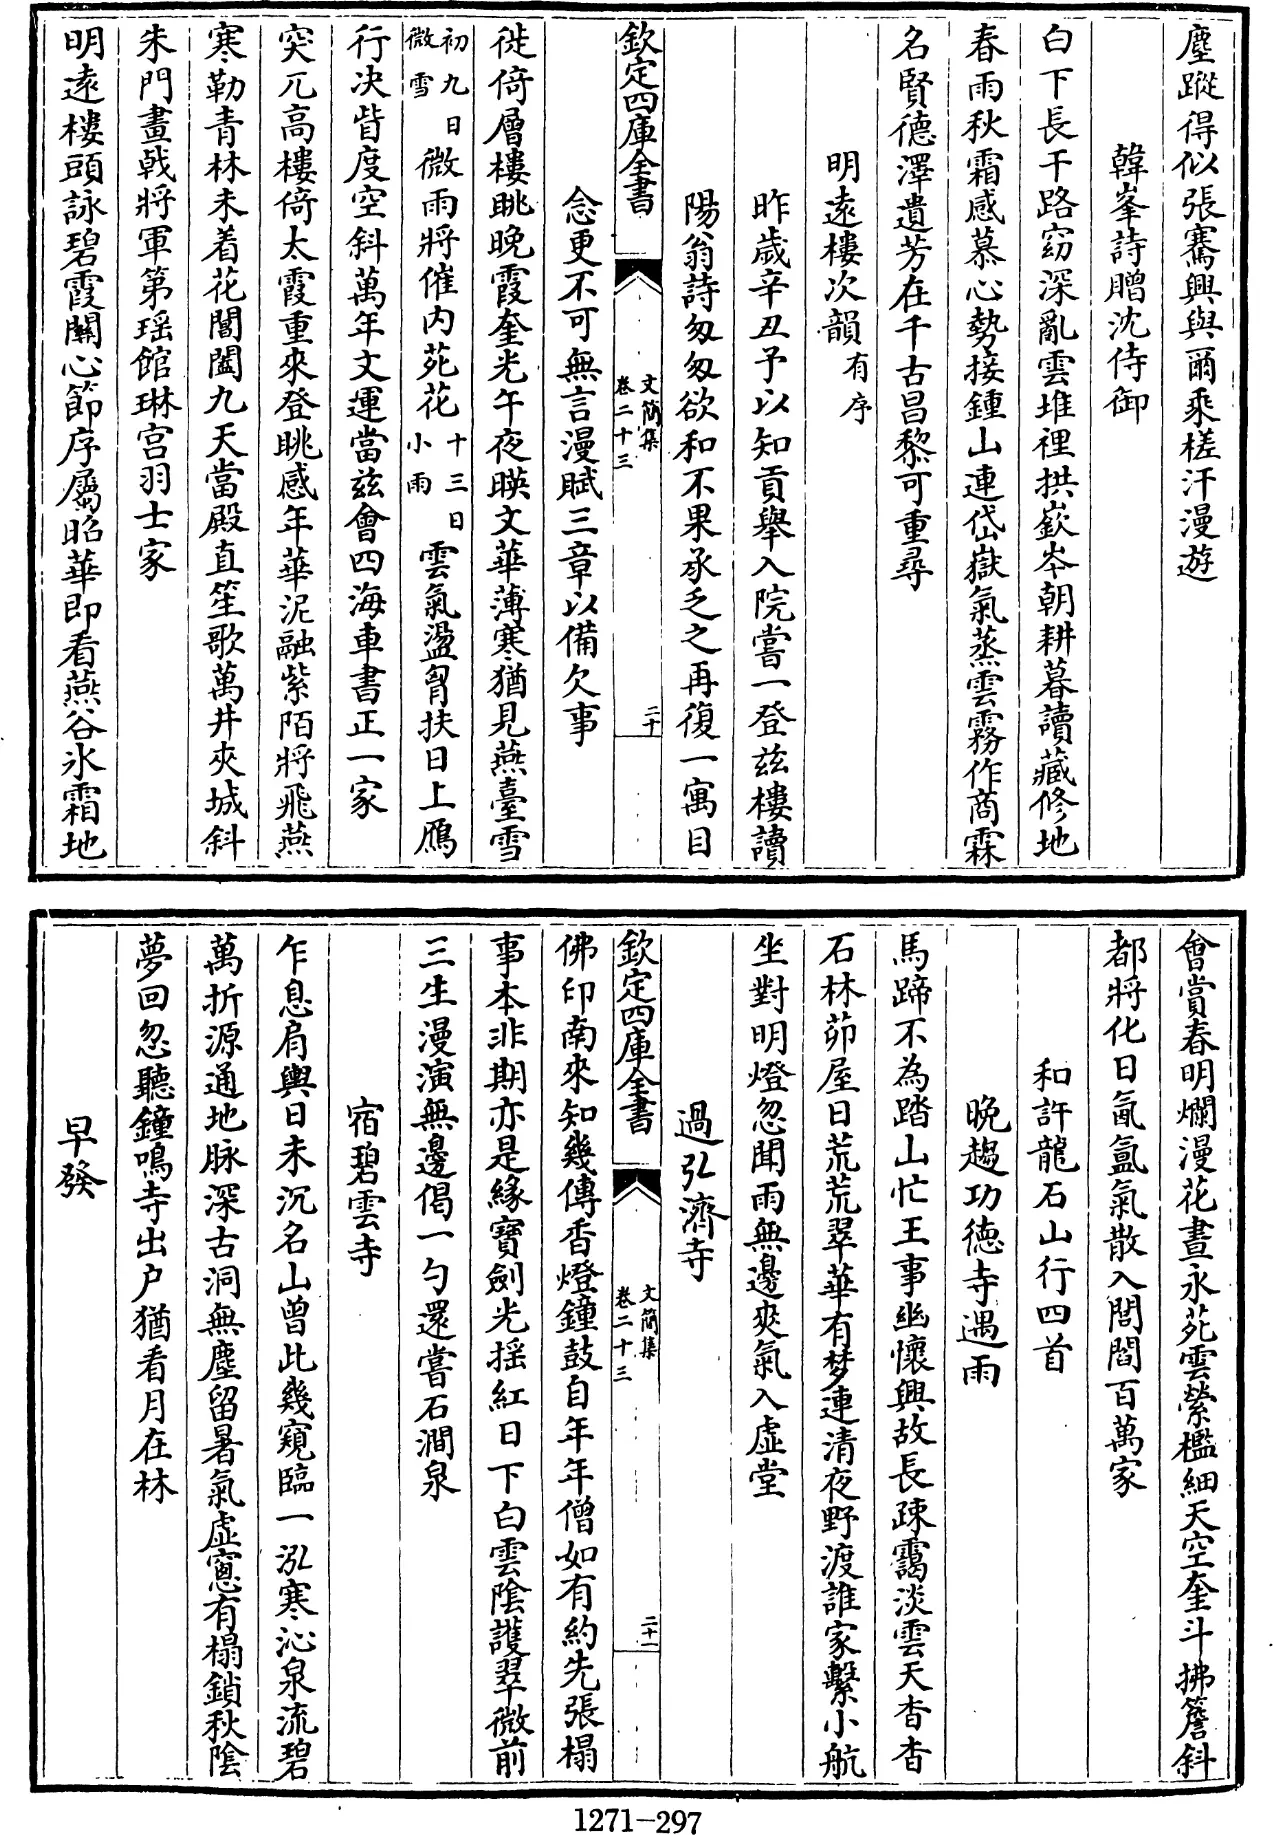 塵蹤得似張騫興與爾乘槎汗漫遊
韓峯詩贈沈侍御
白下長干路窈深亂雲堆裡拱嶔岑朝耕暮讀藏修地
春雨秋霜感慕心勢接鍾山連岱嶽氣蒸雲霧作商霖
名賢德澤遺芳在千古昌黎可重尋
明遠樓次韻有序
昨歲辛丑予以知貢舉入院嘗一登兹樓讀
陽翁詩匆匆欲和不果承乏之再復一寓目
欽定四庫全書
文簡集
卷二十三
二十
念更不可無言漫賦三章以備欠事
徙倚層樓眺晚霞奎光午夜暎文華薄寒猶見燕臺雪
初九日微雪微雨將催内苑花十三日小雨雲氣盪胷扶日上鴈
行决眥度空斜萬年文運當兹會四海車書正一家
突兀高樓倚太霞重來登眺感年華泥融紫陌將飛燕
寒勒青林未着花閶闔九天當殿直笙歌萬井夾城斜
朱門畫戟將軍第瑶館琳宫羽士家
明遠樓頭詠碧霞關心節序屬昭華即看燕谷氷霜地
會賞春明爛漫花晝永苑雲縈檻細天空奎斗拂簷斜
都將化日氤氲氣散入閭閻百萬家
和許龍石山行四首
晚趨功德寺遇雨
馬蹄不為踏山忙王事幽懷興故長疎靄淡雲天杳杳
石林茆屋日荒荒翠華有梦連清夜野渡誰家繫小航
坐對明燈忽聞雨無邊爽氣入虚堂
過弘濟寺
欽定四庫全書
文簡集
卷二十三
二十一
佛印南來知幾傳香燈鐘鼓自年年僧如有約先張榻
事本非期亦是緣寶劍光摇紅日下白雲陰護翠微前
三生漫演無邊偈一勺還嘗石澗泉
宿碧雲寺
乍息肩輿日未沉名山曾此幾窺臨一泓寒沁泉流碧
萬折源通地脉深古洞無塵留暑氣虚窻有榻鎖秋陰
夢回忽聽鐘鳴寺出户猶看月在林
早發
1271-297